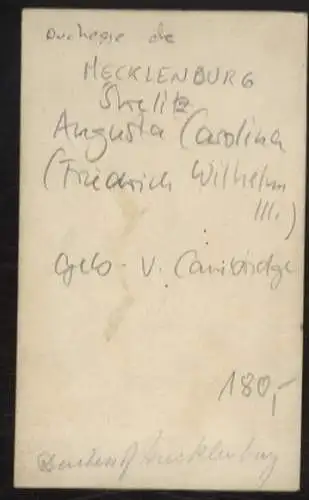 Duchesse de
MECKLENBURG
Strelitz
Augusta Carolina
(Friedrich Wilhelm
III.)
geb. v. Cambridge
180,-
Duchess of Mecklenburg